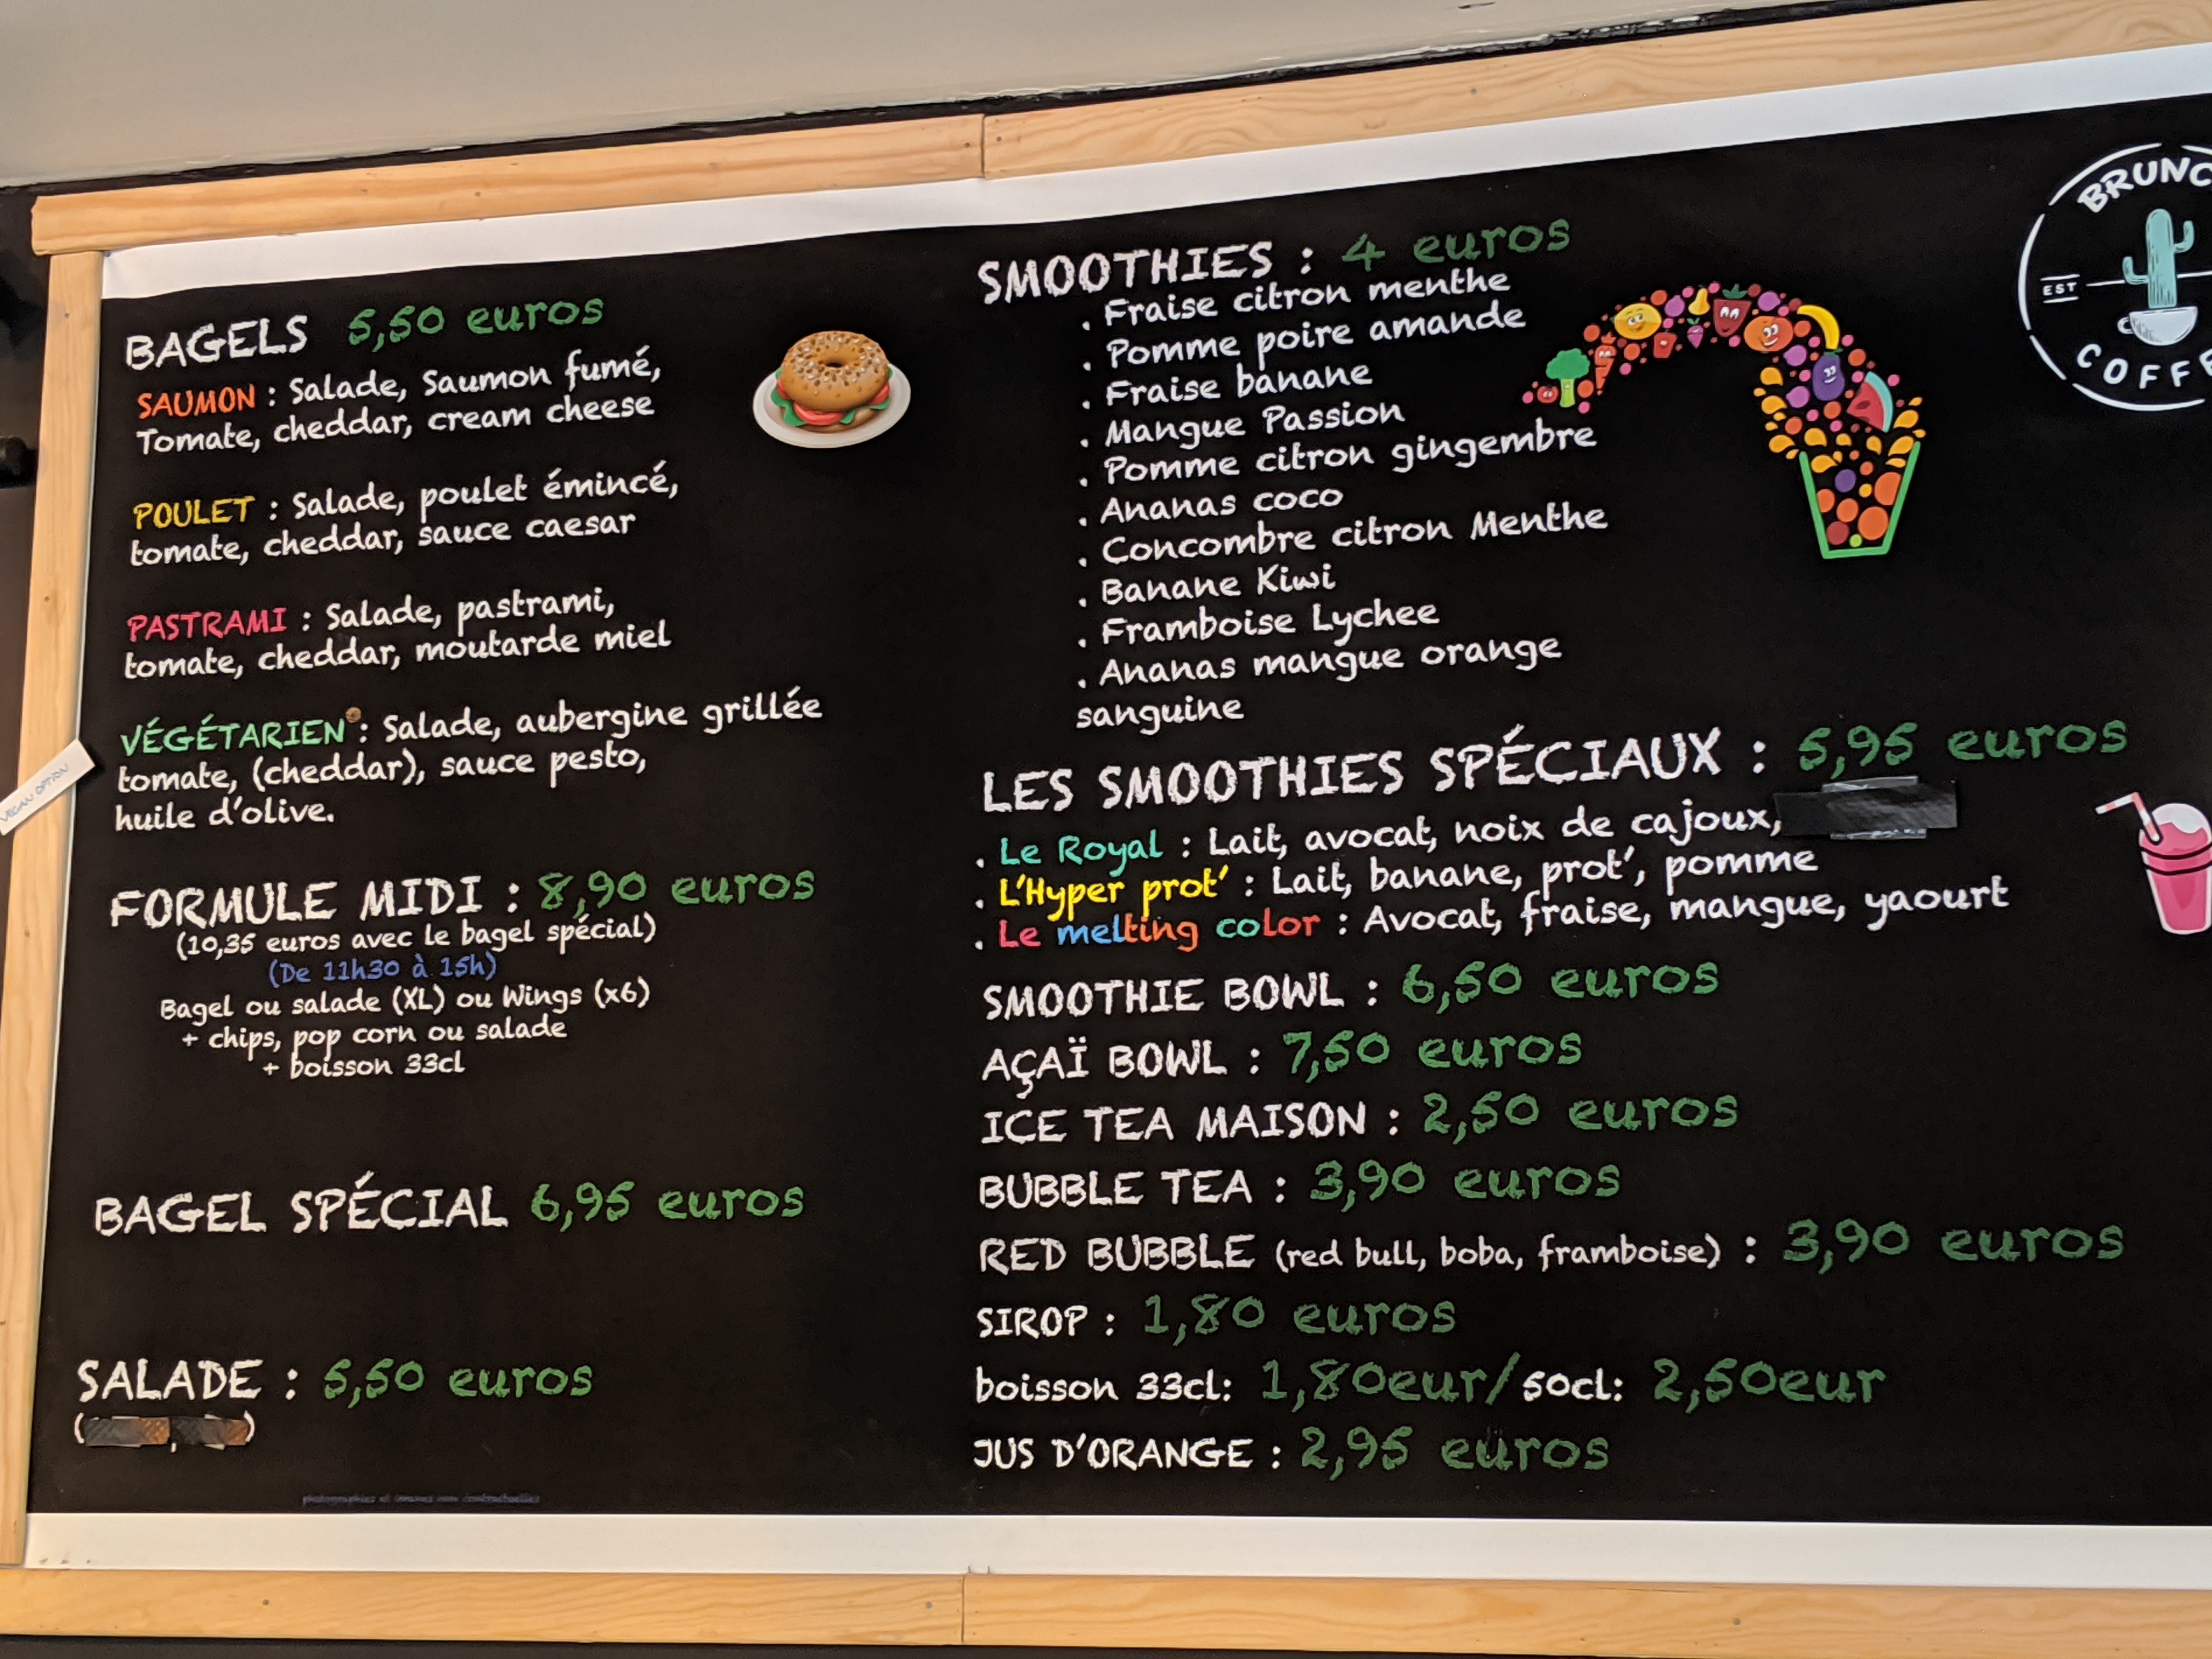 BAGELS 5,50 euros
SAUMON : Salade, Saumon fumé,
Tomate, cheddar, cream cheese
POULET : Salade, poulet émincé,
tomate, cheddar, sauce caesar
PASTRAMI : Salade, pastrami,
tomate, cheddar, moutarde miel
VÉGÉTARIEN : Salade, aubergine grillée
tomate, (cheddar), sauce pesto,
huile d'olive.
VEGAN OPTION
FORMULE MIDI : 8,90 euros
(10,35 euros avec le bagel spécial)
(De 11h30 à 15h)
Bagel ou salade (XL) ou Wings (x6)
+ chips, pop corn ou salade
+ boisson 33cl
BAGEL SPÉCIAL 6,95 euros
SALADE : 5,50 euros
( , )
photographies et images non contractuelles
SMOOTHIES : 4 euros
. Fraise citron menthe
. Pomme poire amande
. Fraise banane
. Mangue Passion
. Pomme citron gingembre
. Ananas coco
. Concombre citron Menthe
. Banane Kiwi
. Framboise Lychee
. Ananas mangue orange
sanguine
LES SMOOTHIES SPÉCIAUX : 5,95 euros
. Le Royal : Lait, avocat, noix de cajoux,
. L'Hyper prot' : Lait, banane, prot', pomme
. Le melting color : Avocat, fraise, mangue, yaourt
SMOOTHIE BOWL : 6,50 euros
AÇAÏ BOWL : 7,50 euros
ICE TEA MAISON : 2,50 euros
BUBBLE TEA : 3,90 euros
RED BUBBLE (red bull, boba, framboise) : 3,90 euros
SIROP : 1,80 euros
boisson 33cl: 1,80eur/50cl: 2,50eur
JUS D'ORANGE : 2,95 euros
BRUNC
EST
COFFE